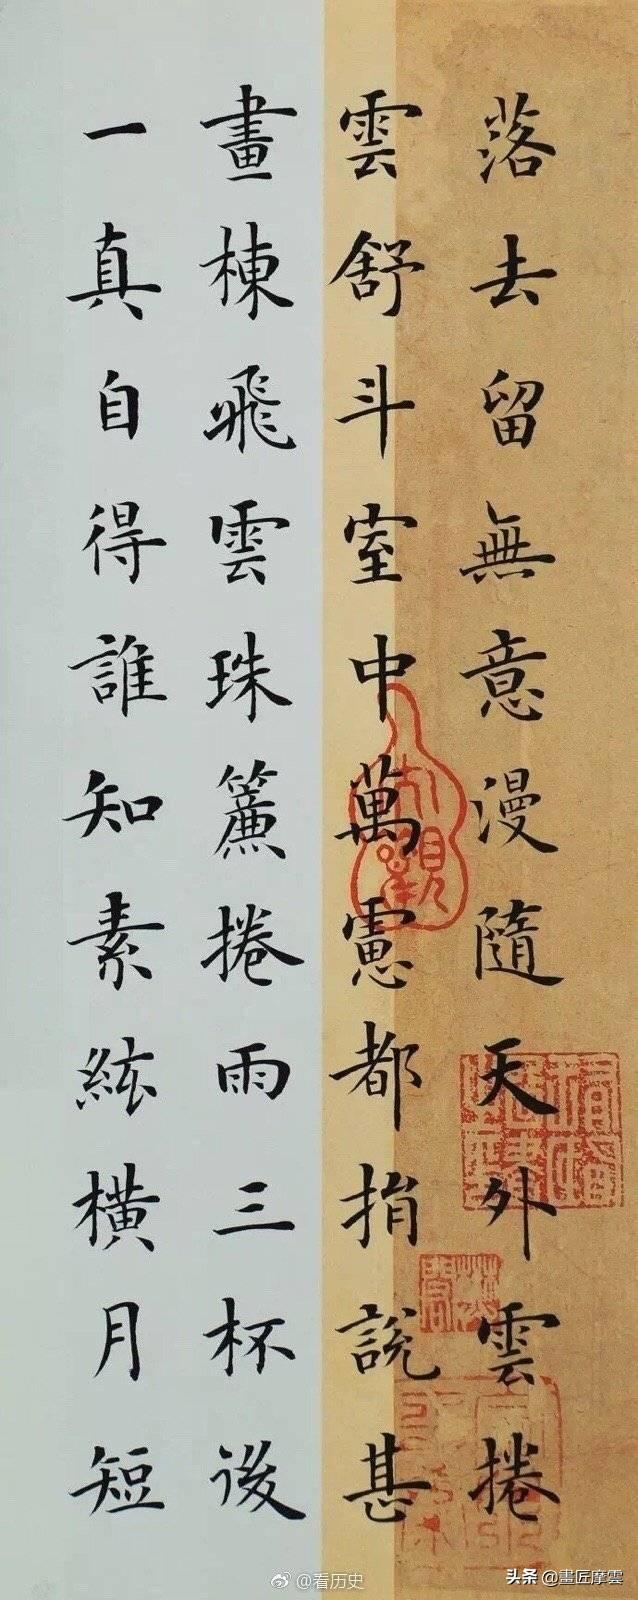 落去留無意漫隨天外雲捲
雲舒斗室中萬慮都捐說甚
畫棟飛雲珠簾捲雨三杯後
一真自得誰知素絃橫月短
@看历史
头条 @畫匠摩雲